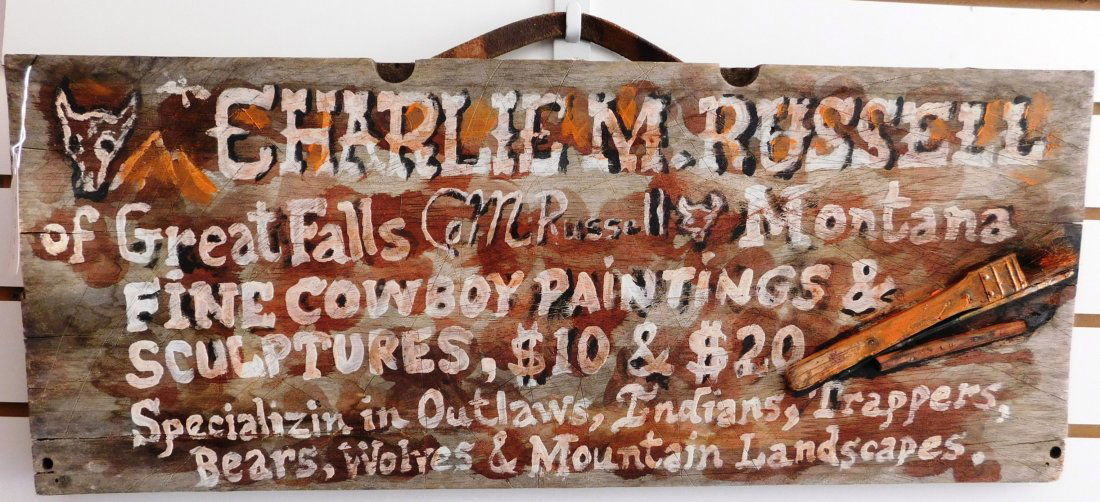 CHARLIE M. RUSSELL
of Great Falls CMRussell Montana
FINE COWBOY PAINTINGS &
SCULPTURES, $10 & $20
Specializin in Outlaws, Indians, Trappers,
Bears, Wolves & Mountain Landscapes.